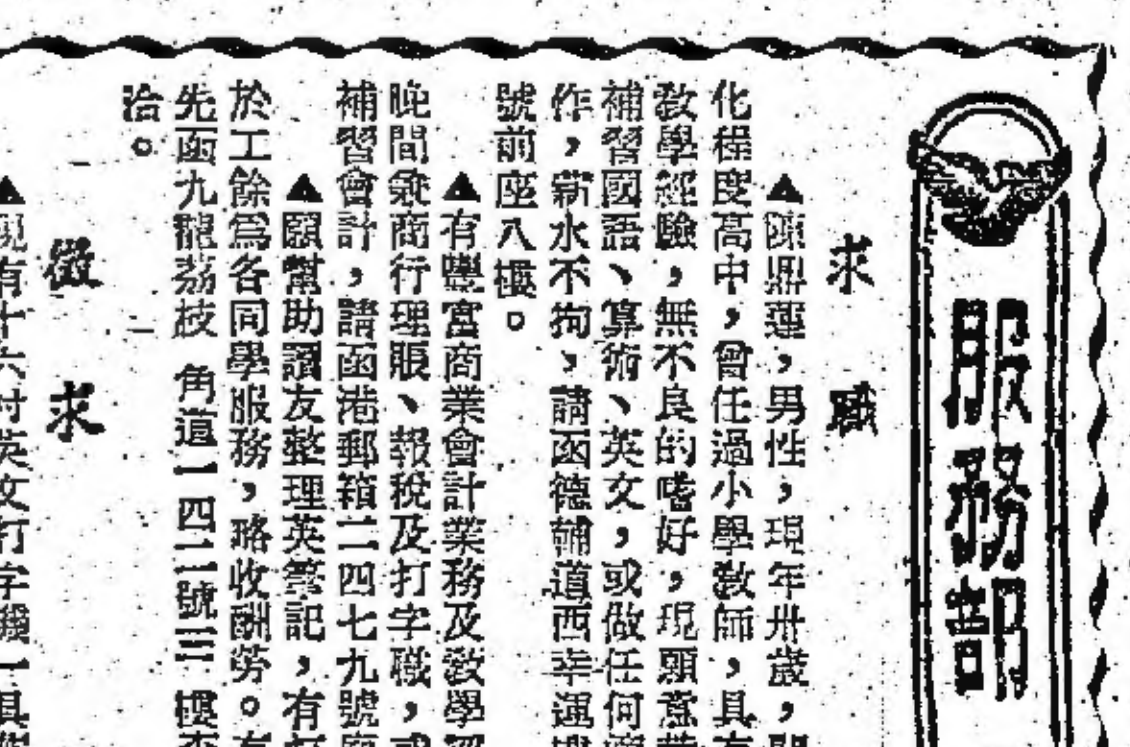 服務部
求職
▲陳鼎蓮,男性,現年卅歲,
化程度高中,曾任過小學教師,具
教學經驗,無不良的嗜好,現願意
補習國語、算術、英文,或做任何
作,薪水不拘,請函德輔道西幸運
號前座八樓。
▲有豐富商業會計業務及教學
晚間兼商行理賬、報稅及打字職,或
補習會計,請函港郵箱二四七九號
▲願幫助讀友整理英筆記,有
於工餘爲各同學服務,略收酬勞。
先函九龍荔枝角道一四二號三樓
洽。
徵求
▲現有十六吋英文打字機一具